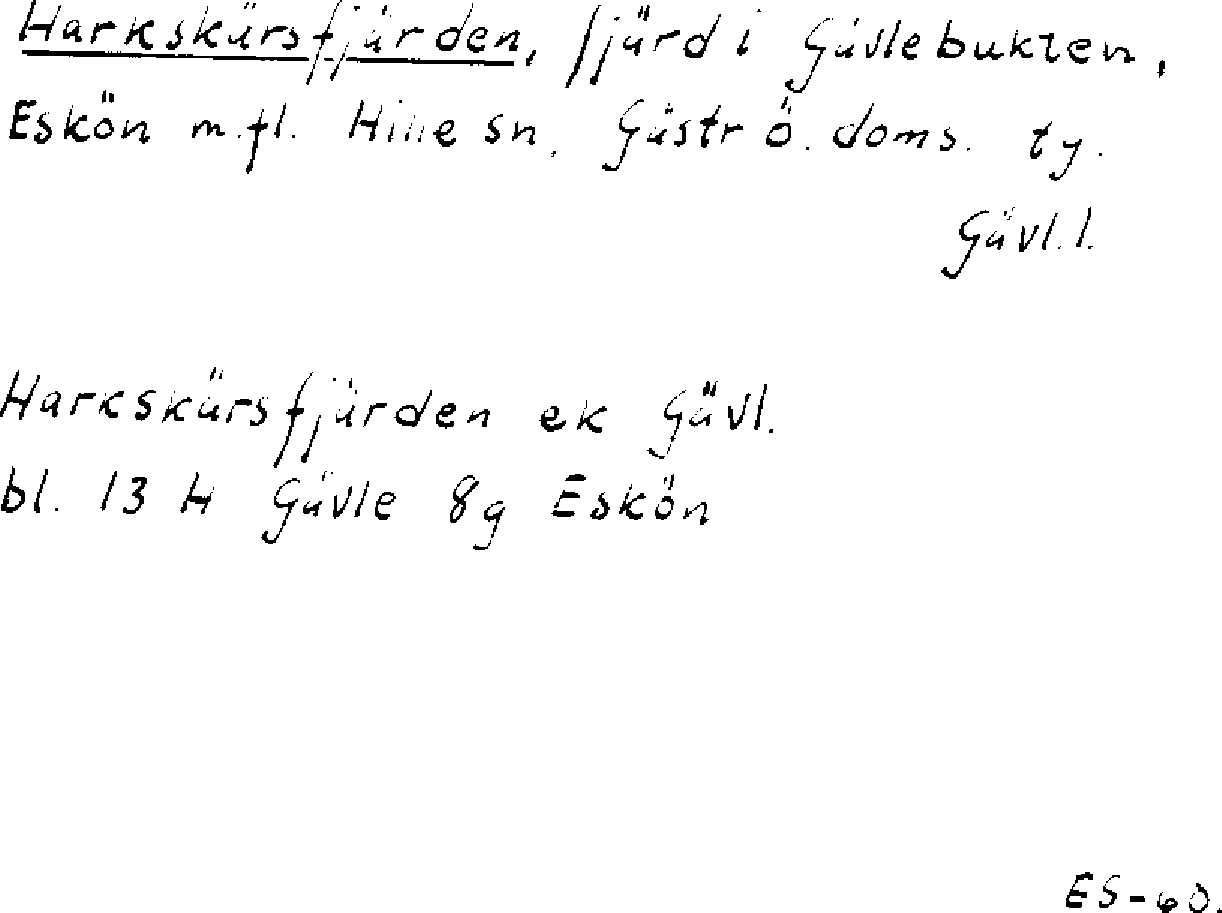 Harkskärsfjärden, fjärd i Gävlebukten,
Eskön m.fl. Hille sn, Gästr Ö. doms. ty.
Gävl. l.
Harkskärsfjärden ek Gävl.
bl. 13 H Gävle 8g Eskön
ES-60.